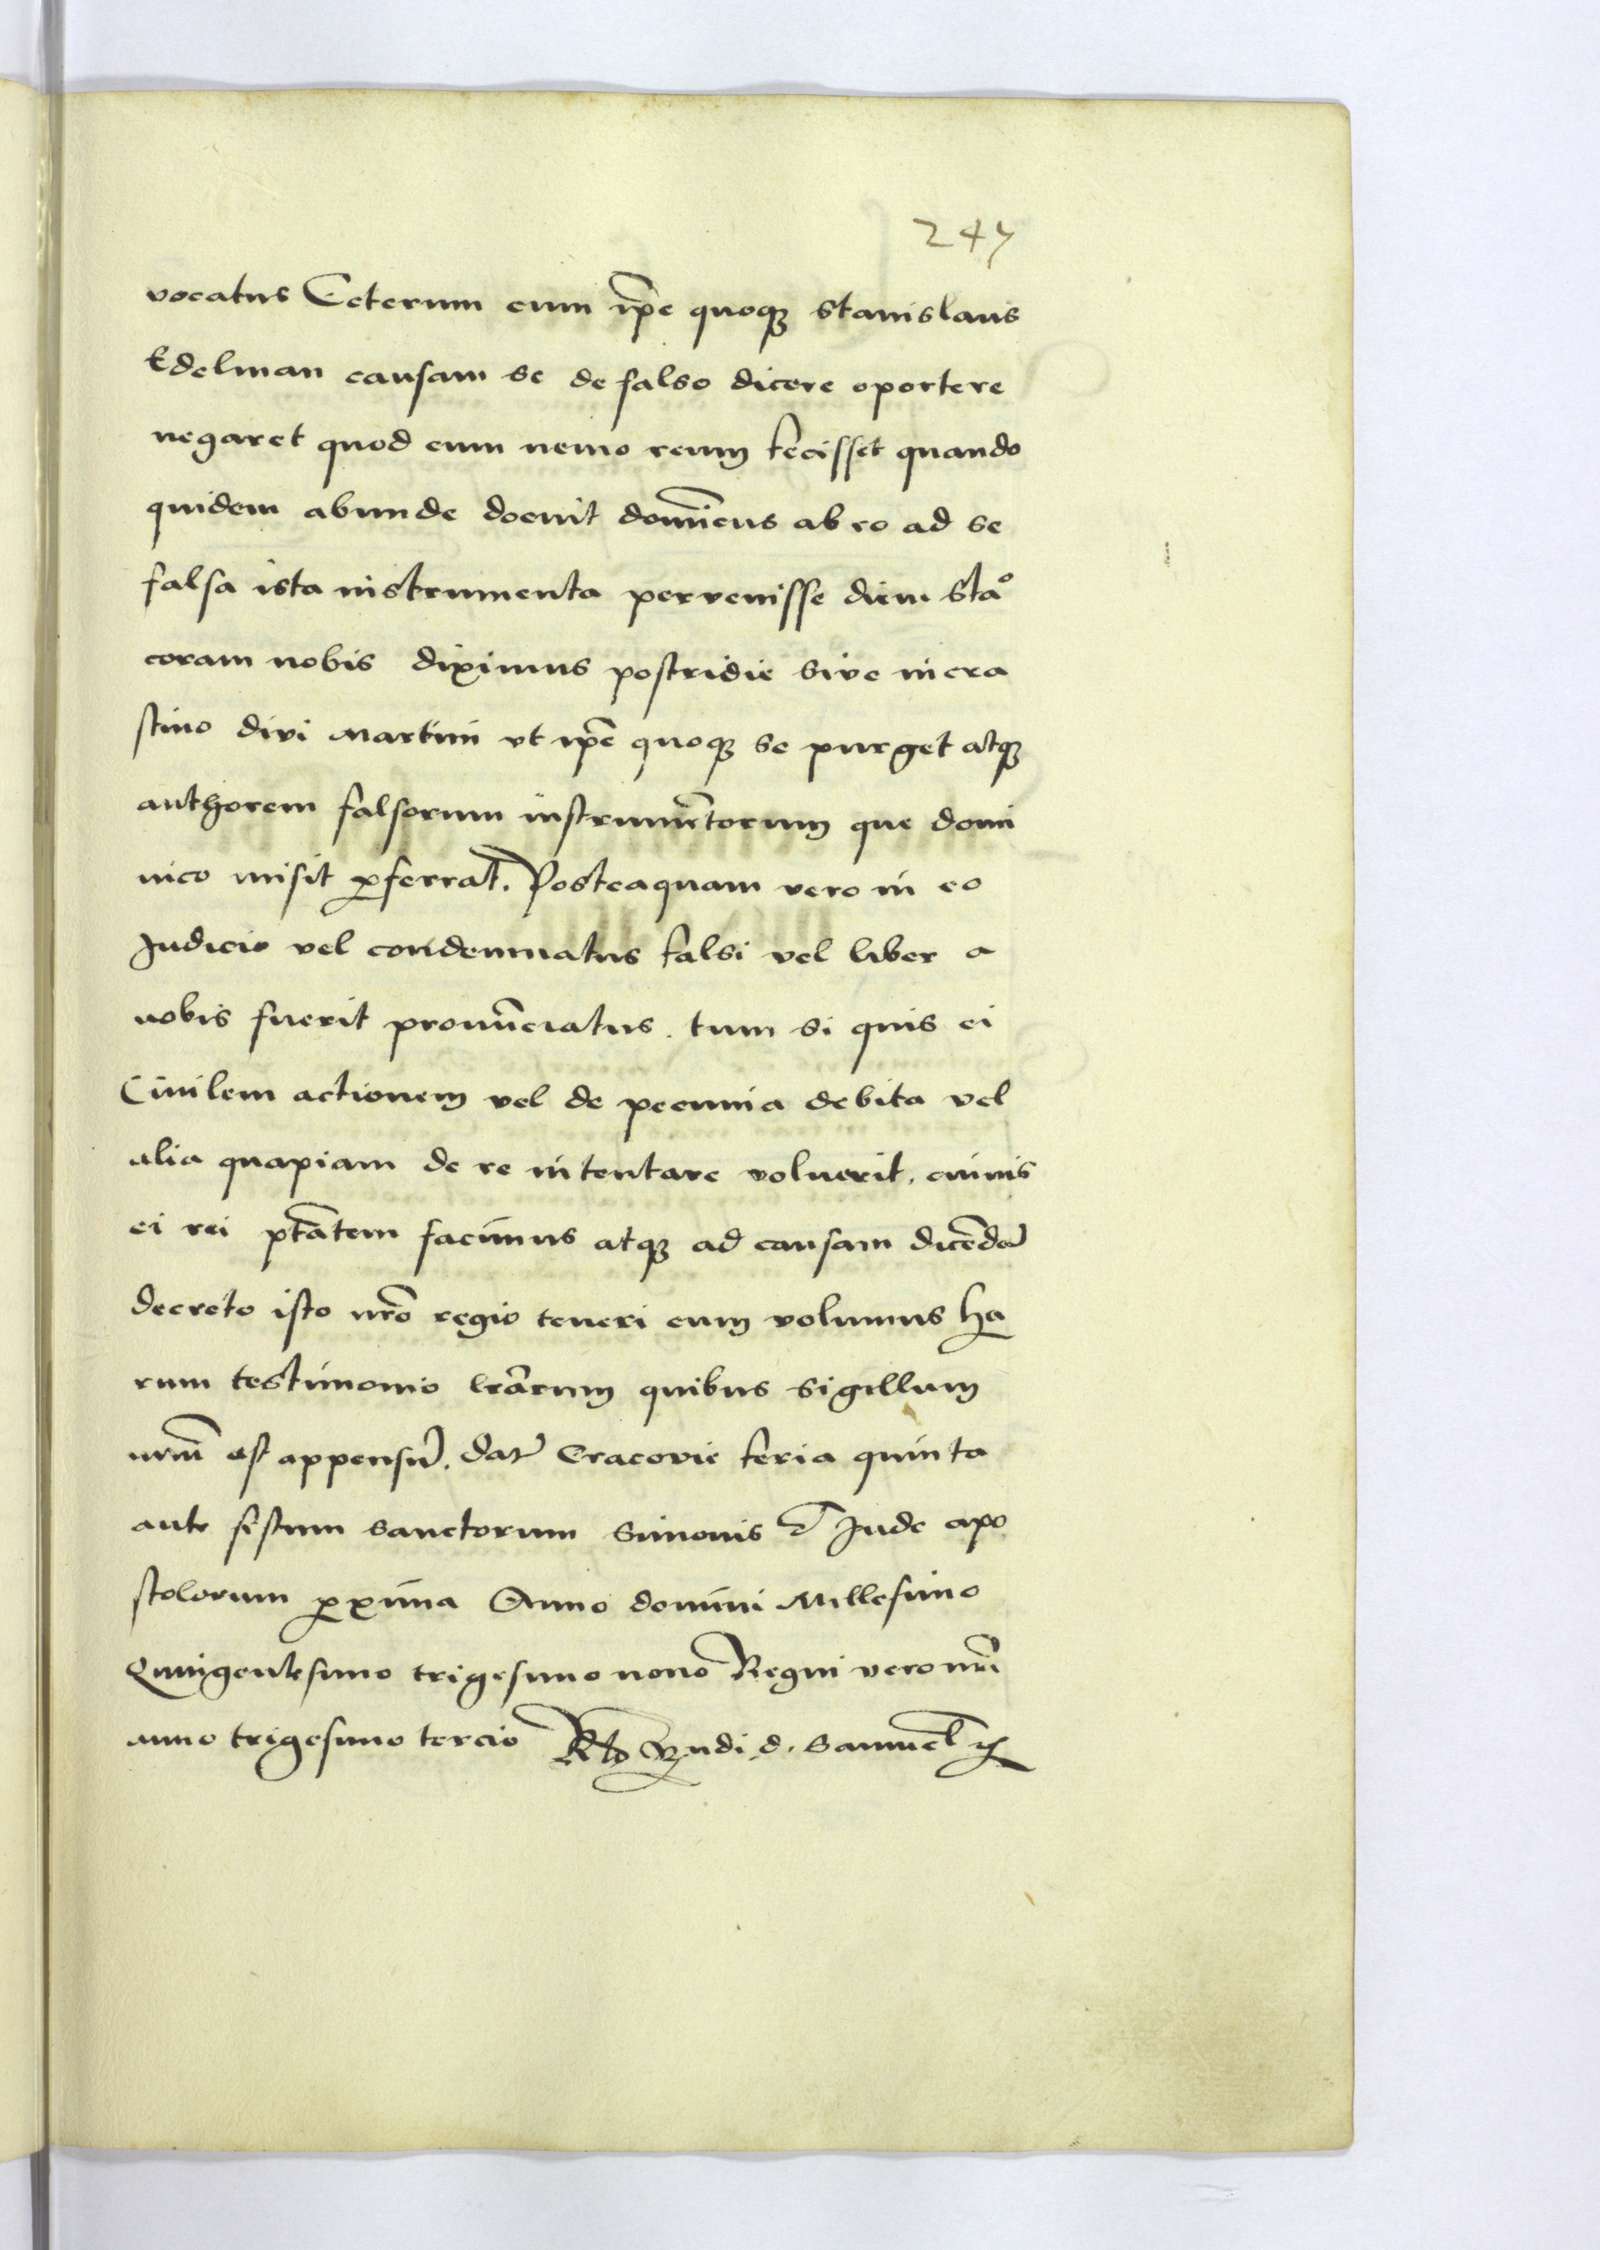 247
vocatus Ceterum cum ip̄e quoqꝫ Stanislaus
Edelman causam se de falso dicere oportere
negaret quod eum nemo reum fecisset quando
quidem abunde docuit domīcus ab eo ad se
falsa ista instrumenta pervenisse diem Staº
coram nobis diximus postridie sive in cra
stino divi Martini vt ip̄e quoqꝫ se purget atqꝫ
authorem falsorum instrumētorum que domi
nico misit ꝑferrat. Posteaquam vero in eo
Judicio vel condemnatus falsi vel liber a
nobis fuerit pronūciatus. tum si quis ei
Civilem actionem vel de pecunia debita vel
alia quapiam de re intentare voluerit, cuivis
ei rei ptātem facimus atqꝫ ad causam dicēdā
decreto isto nr̄o regio teneri eum volumus ha
rum testimonio lrārum quibus sigillum
nrm̄ est appensū. dat̄ Cracovie feria quinta
ante festum sanctorum Simonis et Jude apo
stolorum ꝓxima Anno domini Millesimo
Quingentesimo trigesimo nono Regni vero nrī
anno trigesimo tercio R. d. Samuel